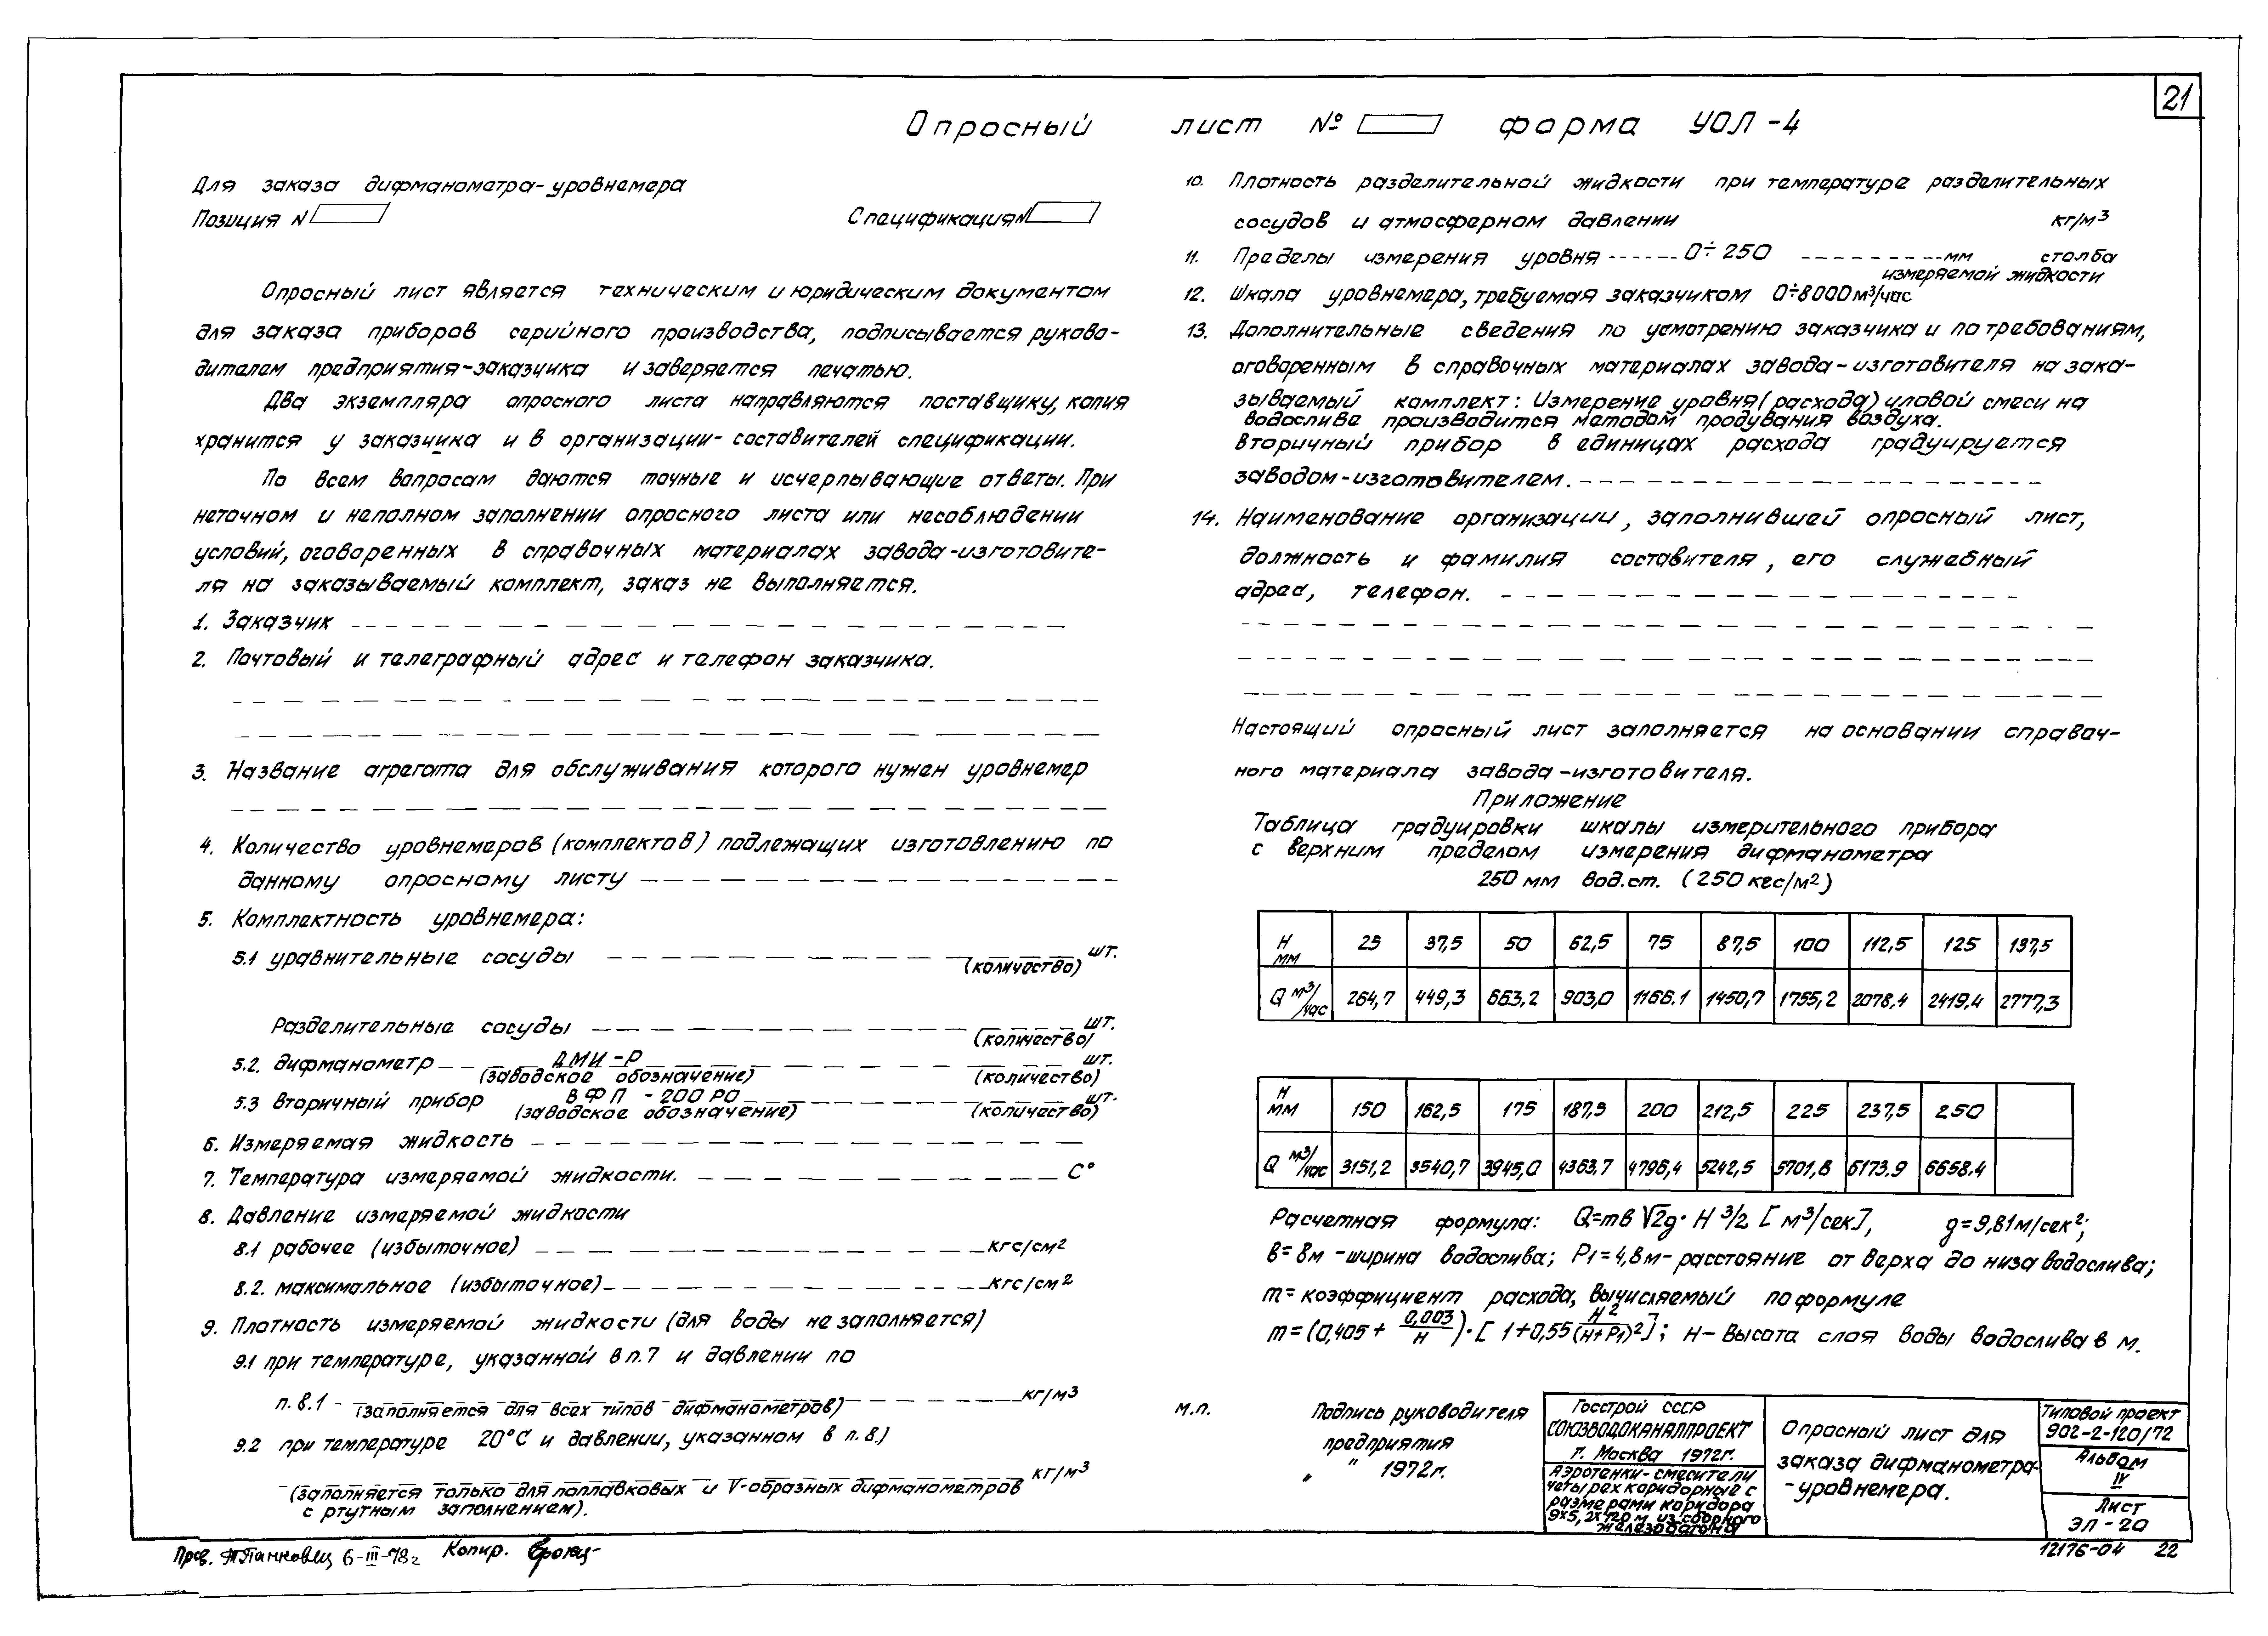 21
Опросный лист № форма УОЛ-4
Для заказа дифманометра-уровнемера
Позиция N Спецификация N
Опросный лист является техническим и юридическим документом
для заказа приборов серийного производства, подписывается руково-
дителем предприятия-заказчика и заверяется печатью.
Два экземпляра опросного листа направляются поставщику, копия
хранится у заказчика и в организации-составителей спецификации.
По всем вопросам даются точные и исчерпывающие ответы. При
неточном и неполном заполнении опросного листа или несоблюдении
условий, оговоренных в справочных материалах завода-изготовите-
ля на заказываемый комплект, заказ не выполняется.
1. Заказчик
2. Почтовый и телеграфный адрес и телефон заказчика.
3. Название агрегата для обслуживания которого нужен уровнемер
4. Количество уровнемеров (комплектов) подлежащих изготовлению по
данному опросному листу
5. Комплектность уровнемера:
5.1 уравнительные сосуды шт.
(количество)
Разделительные сосуды шт.
(количество)
5.2. дифманометр ДМИ-Р шт.
(заводское обозначение) (количество)
5.3 вторичный прибор ВФП-200 РО шт.
(заводское обозначение) (количество)
6. Измеряемая жидкость
7. Температура измеряемой жидкости. С°
8. Давление измеряемой жидкости
8.1 рабочее (избыточное) кгс/см²
8.2. максимальное (избыточное) кгс/см²
9. Плотность измеряемой жидкости (для воды не заполняется)
9.1 при температуре, указанной в п.7 и давлении по
п. 8.1 - кг/м³
(заполняется для всех типов дифманометров)
9.2 при температуре 20°С и давлении, указанном в п. 8.)
кг/м³
(заполняется только для поплавковых и V-образных дифманометров
с ртутным заполнением).
10. Плотность разделительной жидкости при температуре разделительных
сосудов и атмосферном давлении кг/м³
11. Пределы измерения уровня 0÷250 мм столба
измеряемой жидкости
12. Шкала уровнемера, требуемая заказчиком 0÷8000 м³/час
13. Дополнительные сведения по усмотрению заказчика и по требованиям,
оговоренным в справочных материалах завода-изготовителя на зака-
зываемый комплект: Измерение уровня (расхода) иловой смеси на
водосливе производится методом продувания воздуха.
Вторичный прибор в единицах расхода градуируется
заводом-изготовителем.
14. Наименование организации, заполнившей опросный лист,
должность и фамилия составителя, его служебный
адрес, телефон.
Настоящий опросный лист заполняется на основании справоч-
ного материала завода-изготовителя.
Приложение
Таблица градуировки шкалы измерительного прибора
с верхним пределом измерения дифманометра
250 мм вод.ст. (250 кгс/м²)
H мм 25 37,5 50 62,5 75 87,5 100 112,5 125 137,5
Q м³/час 264,7 449,3 663,2 903,0 1166.1 1450,7 1755,2 2078.4 2419.4 2777,3
H мм 150 162,5 175 187,5 200 212,5 225 237,5 250
Q м³/час 3151,2 3540,7 3945,0 4363.7 4796,4 5242,5 5701,8 6173.9 6658.4
Расчетная формула: Q=mв√2g · H 3/2 [м³/сек], g=9,81м/сек²;
в=8м -ширина водослива; P1=4,8м- расстояние от верха до низа водослива;
m= коэффициент расхода, вычисляемый по формуле
m=(0,405+ 0,003/H)·[1+0,55 H²/(H+P1)²]; H-Высота слоя воды водослива в м.
м.п. Подпись руководителя
предприятия
" " 1972г.
Госстрой СССР
СОЮЗВОДОКАНАЛПРОЕКТ
г. Москва 1972г.
Аэротенки-смесители
четырехкоридорные с
размерами коридора
9х5,2х120 м из сборного
железобетона
Опросный лист для
заказа дифманометра-
-уровнемера.
Типовой проект
902-2-120/72
Альбом
IV
Лист
ЭЛ-20
12176-04 22
Пров. 6-III-78г Копир.